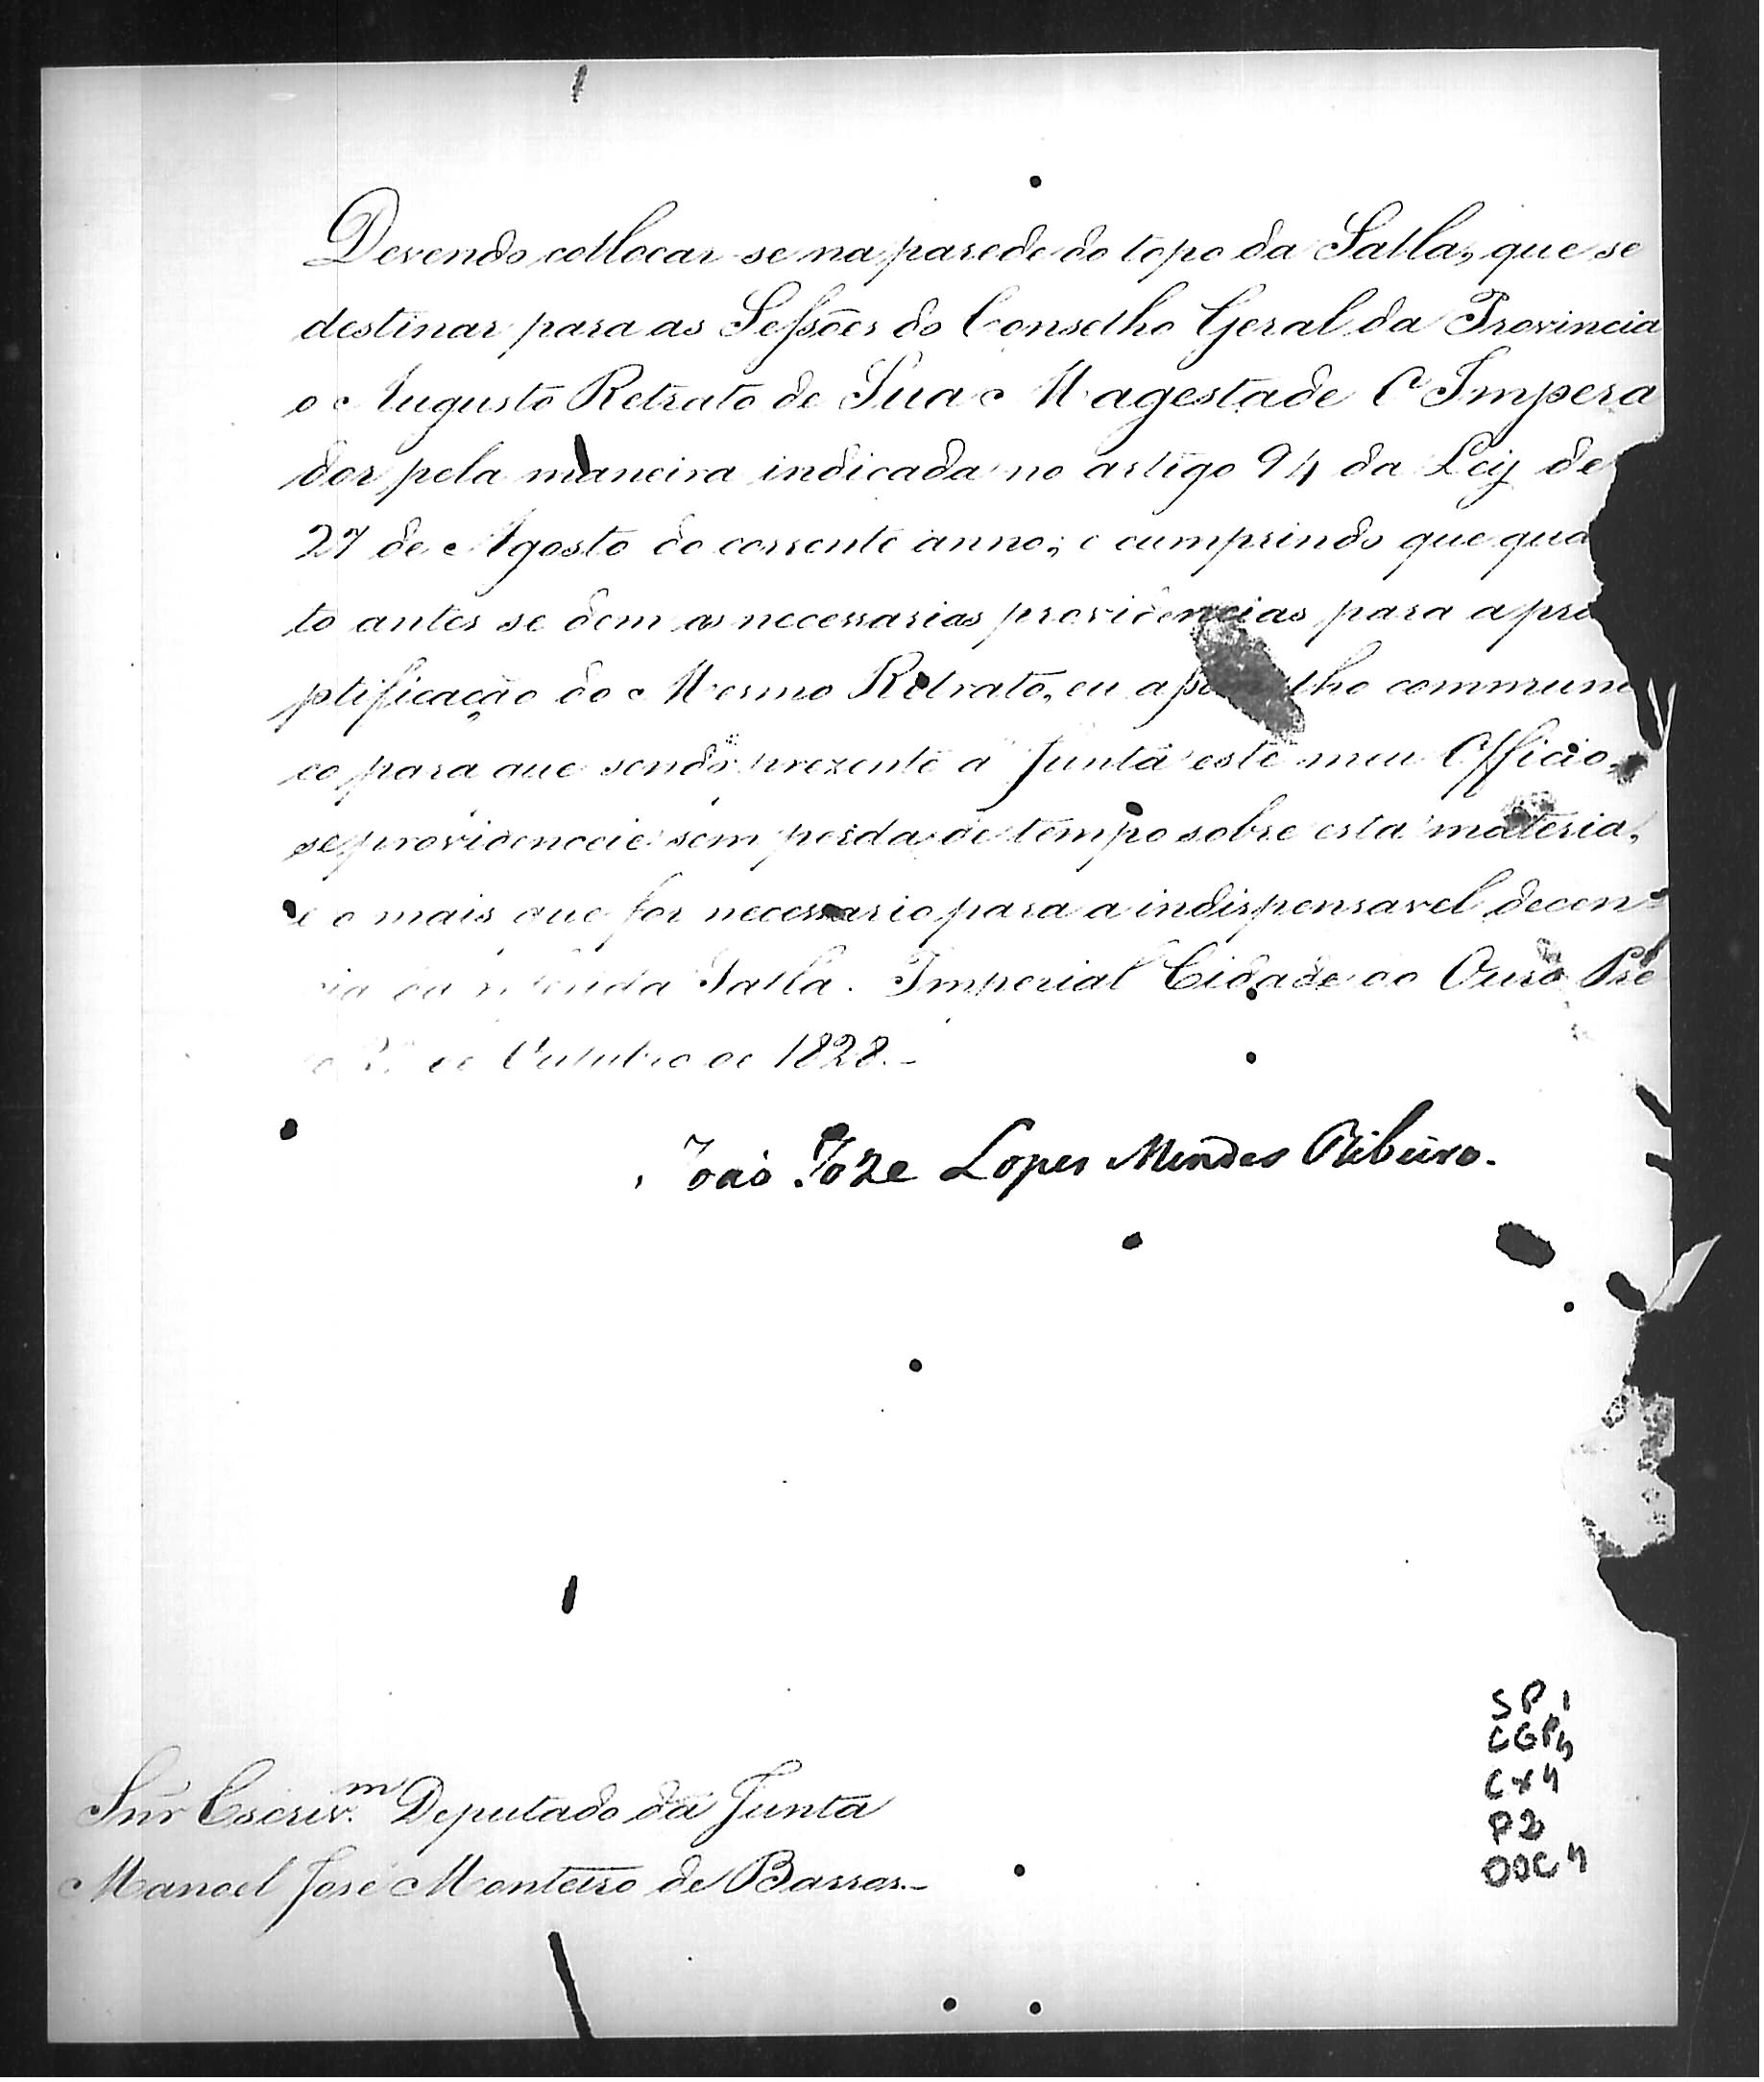 Devendo collocar-se na parede do topo da Salla, que se
destinar para as Sessões do Conselho Geral da Provincia
o Augusto Retrato de Sua Magestade O Impera
dor pela maneira indicada no artigo 94 da Ley de
27 de Agosto do corrente anno; e cumprindo que qua
to antes se dem as necessarias providencias para a pro
ptificação do Mesmo Retrato, eu a commun
co para que sendo prezente á Junta este meu Officio,
se providenceie sem perda de tempo sobre esta materia,
e o mais que for necessario para a indispensavel decen-
cia da Salla. Imperial Cidade do Ouro Pre
de Outubro de 1828.-
João Joze Lopes Mendes Ribeiro.
Snr Escriv.m Deputado da Junta
Manoel José Monteiro de Barros.-
SP 1
CGP4
CX4
P2
DOC 4